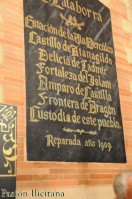 Calahorra
Estación de la Vía Hercúlea
Castillo de Atanagildo
Delicia de Zadmit
Fortaleza del Islam
Amparo de Castilla
Frontera de Aragón
Custodia de este pueblo
Reparada año 1909
Pusón Ilicitana